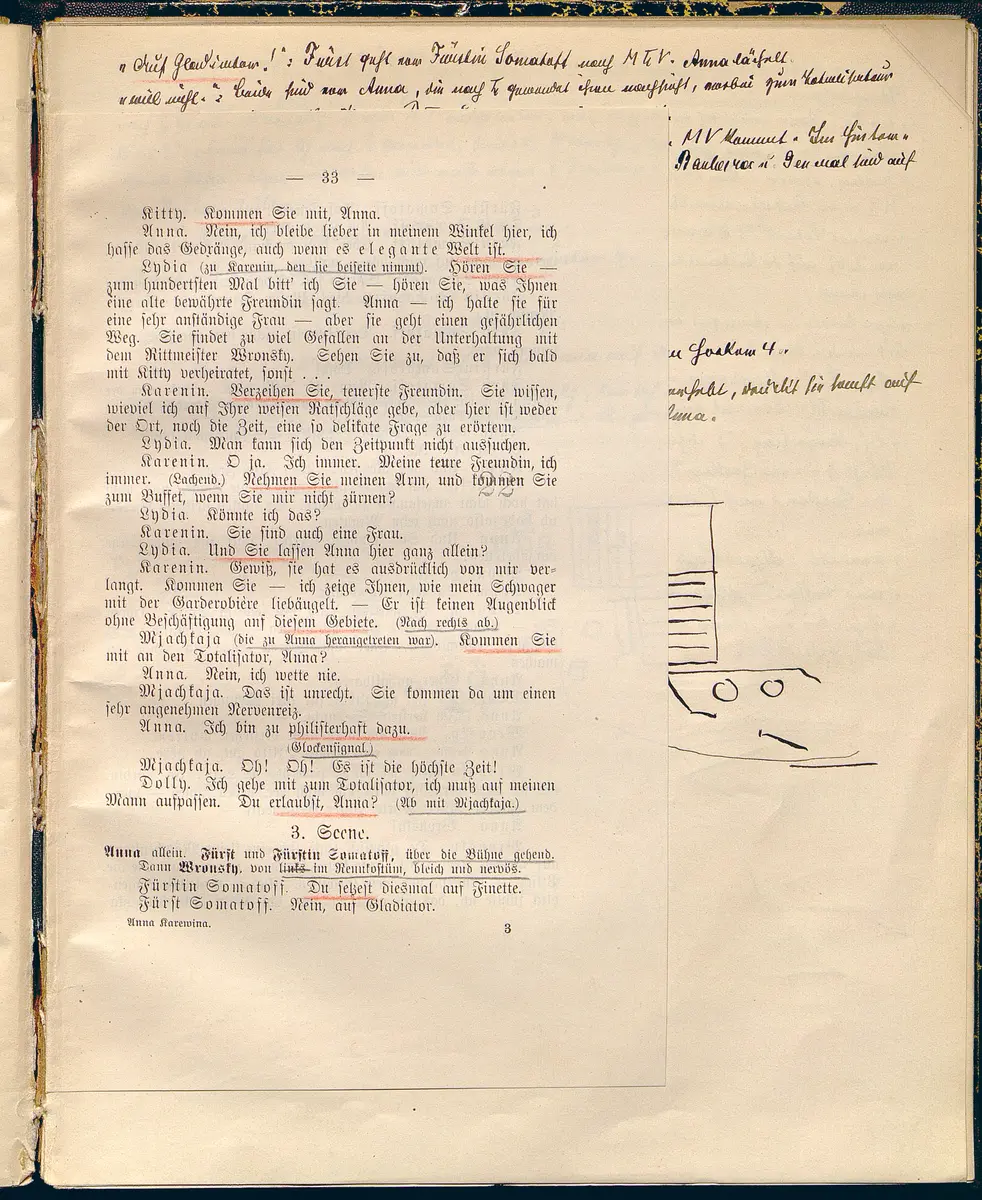 „Auf Gladiator!“: Fürst geht vor Fürstin Somatoff nach M T V. Anna lächelt.
will nicht.“: Beide sind vor Anna, die nach T gewendet ihnen nachsieht, vorbei zum Totalisateur
M V kommt
sind auf
— 33 —
Kitty. Kommen Sie mit, Anna.
Anna. Nein, ich bleibe lieber in meinem Winkel hier, ich
hasse das Gedränge, auch wenn es elegante Welt ist.
Lydia (zu Karenin, den sie beiseite nimmt). Hören Sie —
zum hundertsten Mal bitt' ich Sie — hören Sie, was Ihnen
eine alte bewährte Freundin sagt. Anna — ich halte sie für
eine sehr anständige Frau — aber sie geht einen gefährlichen
Weg. Sie findet zu viel Gefallen an der Unterhaltung mit
dem Rittmeister Wronsky. Sehen Sie zu, daß er sich bald
mit Kitty verheiratet, sonst . . .
Karenin. Verzeihen Sie, teuerste Freundin. Sie wissen,
wieviel ich auf Ihre weisen Ratschläge gebe, aber hier ist weder
der Ort, noch die Zeit, eine so delikate Frage zu erörtern.
Lydia. Man kann sich den Zeitpunkt nicht aussuchen.
Karenin. O ja. Ich immer. Meine teure Freundin, ich
immer. (Lachend.) Nehmen Sie meinen Arm, und kommen Sie
zum Buffet, wenn Sie mir nicht zürnen?
22
Lydia. Könnte ich das?
Karenin. Sie sind auch eine Frau.
Lydia. Und Sie lassen Anna hier ganz allein?
Karenin. Gewiß, sie hat es ausdrücklich von mir ver-
langt. Kommen Sie — ich zeige Ihnen, wie mein Schwager
mit der Garderobière liebäugelt. — Er ist keinen Augenblick
ohne Beschäftigung auf diesem Gebiete. (Nach rechts ab.)
Mjachkaja (die zu Anna herangetreten war). Kommen Sie
mit an den Totalisator, Anna?
Anna. Nein, ich wette nie.
Mjachkaja. Das ist unrecht. Sie kommen da um einen
sehr angenehmen Nervenreiz.
Anna. Ich bin zu philisterhaft dazu.
(Glockensignal.)
Mjachkaja. Oh! Oh! Es ist die höchste Zeit!
Dolly. Ich gehe mit zum Totalisator, ich muß auf meinen
Mann aufpassen. Du erlaubst, Anna? (Ab mit Mjachkaja.)
3. Scene.
Anna allein. Fürst und Fürstin Somatoff, über die Bühne gehend.
Dann Wronsky, von links im Rennkostüm, bleich und nervös.
Fürstin Somatoff. Du setzest diesmal auf Finette.
Fürst Somatoff. Nein, auf Gladiator.
Anna Karewina.
3
sie sanft auf